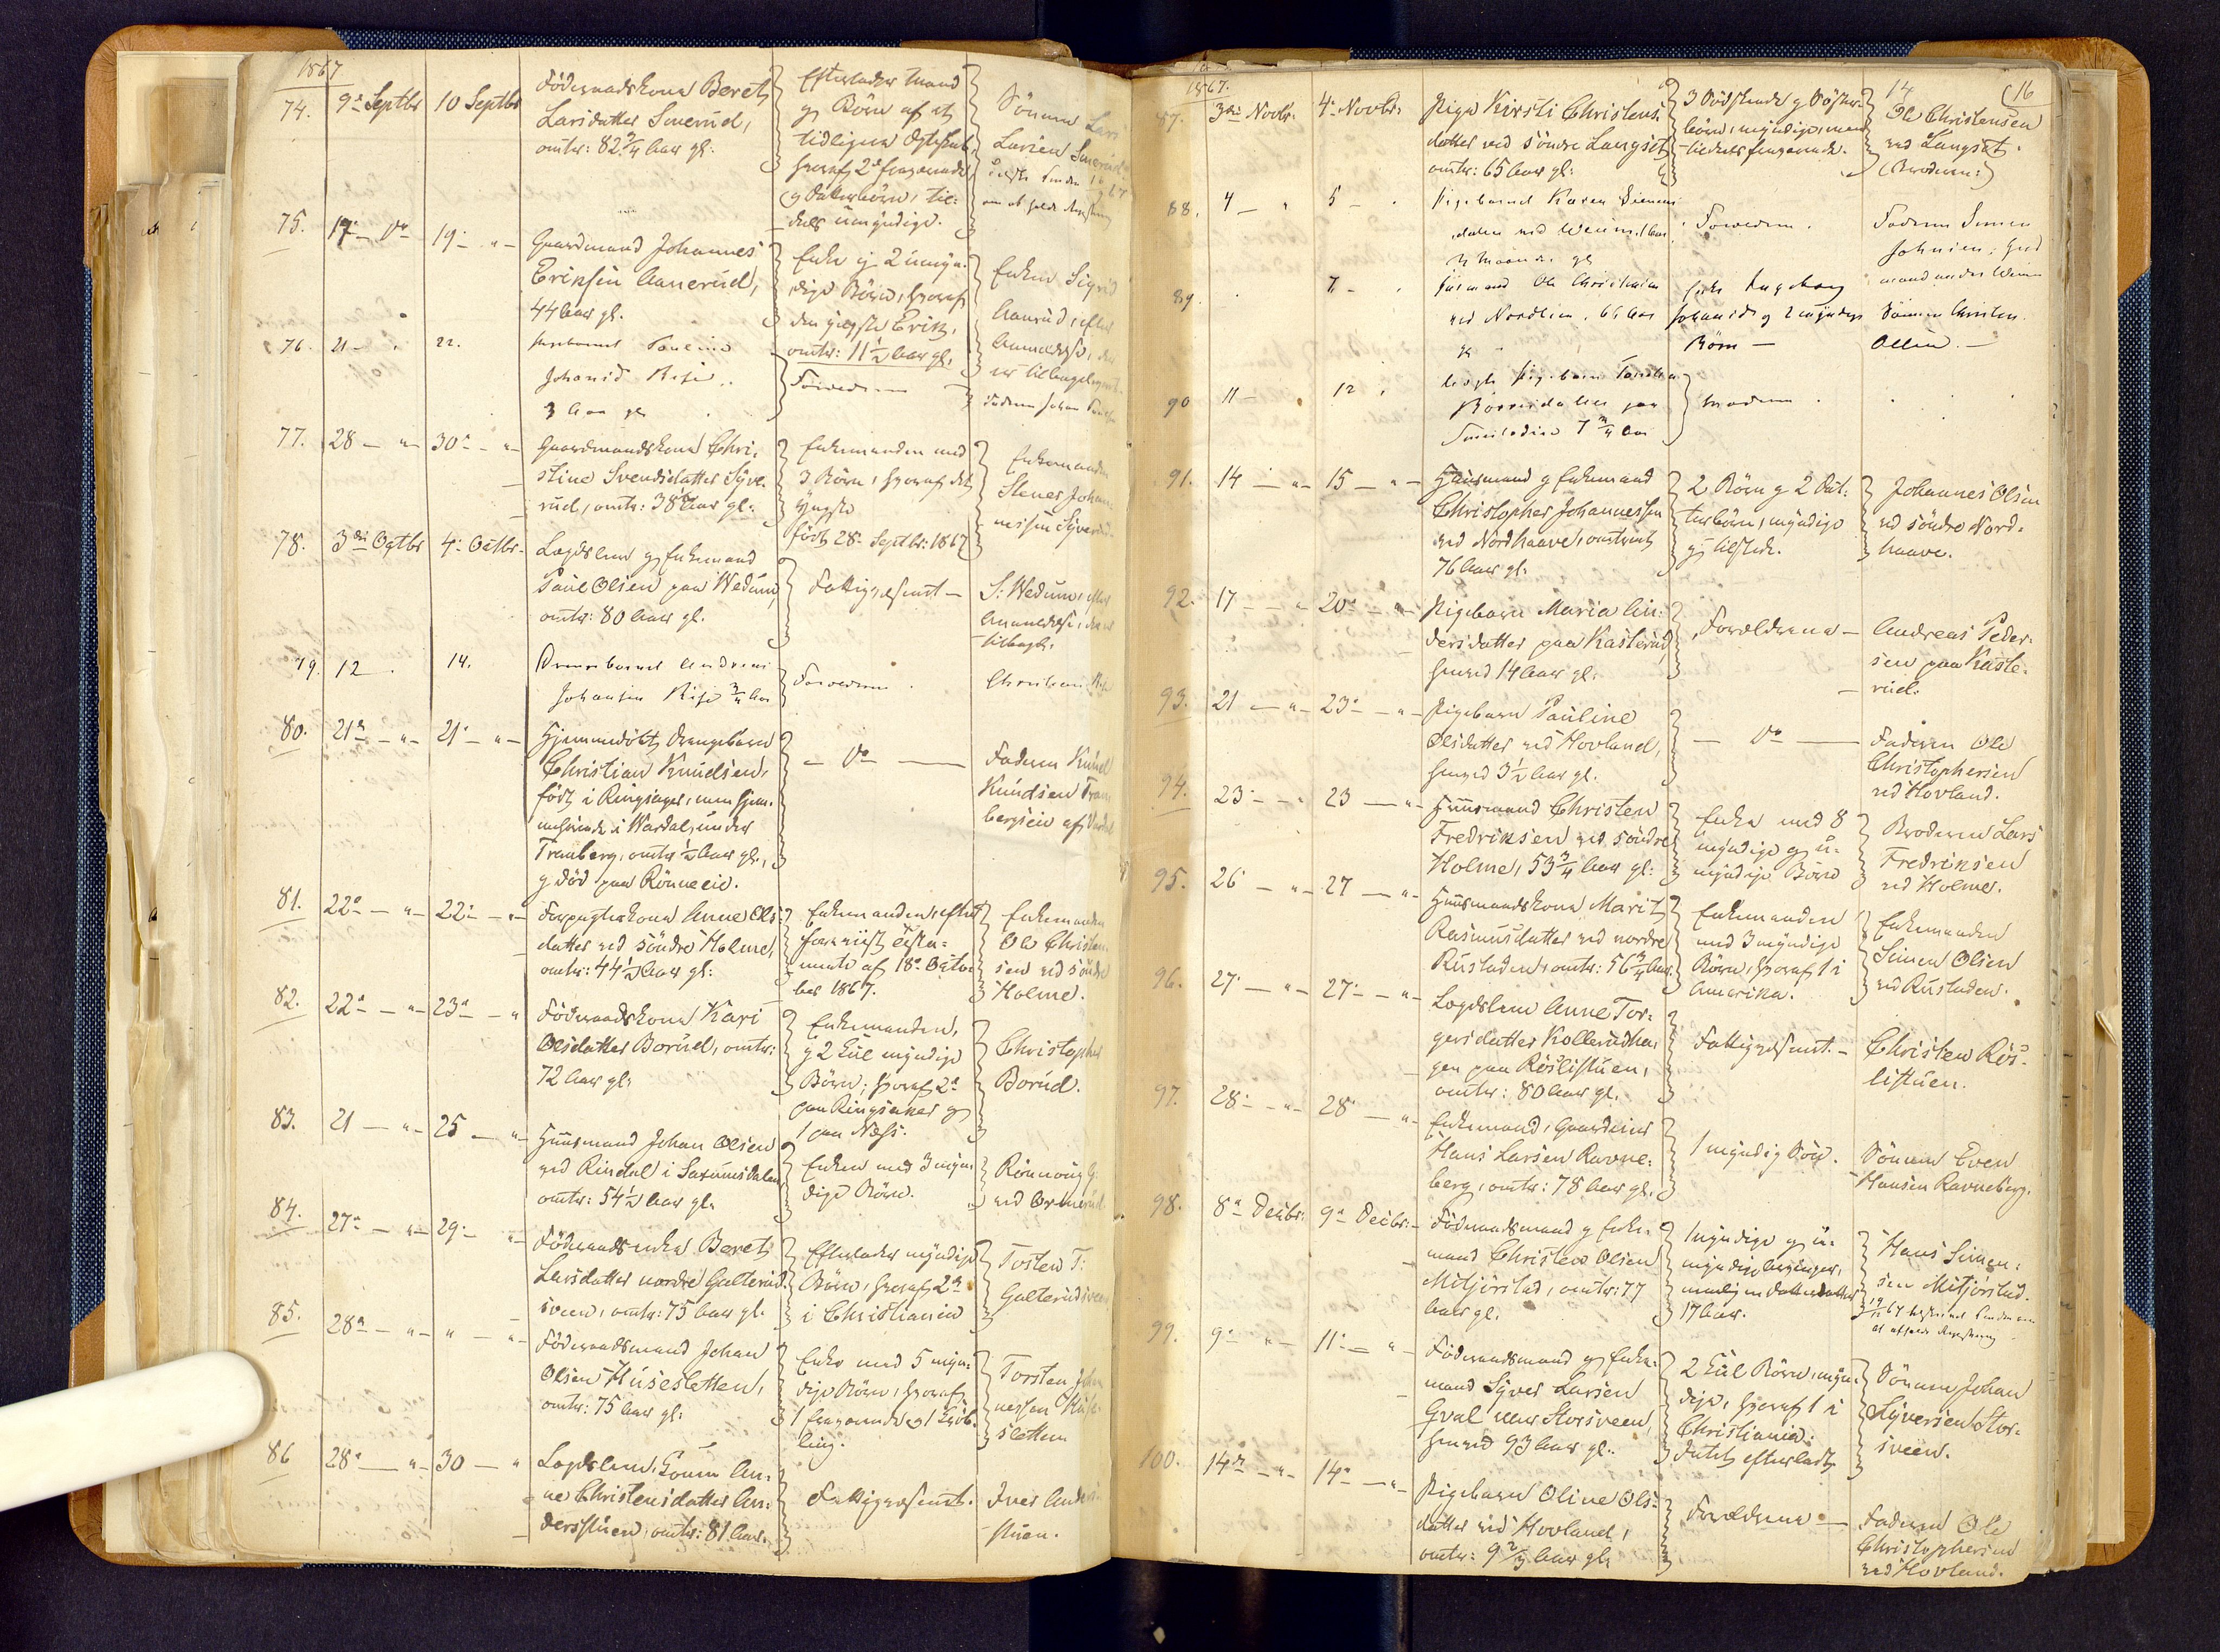 1867
74. 9de Septbr 10 Septbr
Föderaadskone Beret
Larsdatter Smerud,
omtr: 82 3/4 Aar gl:
Efterlader Mand
og Börn af et
tidligere Ægteskab,
hvoraf 2de fraværende
og Datterbörn, til-
dels umyndige.
Sönnen Lars
Larsen Smerud
75. 17de - Do 19de - " -
Gaardmand Johannes
Eriksen Aanerud,
44 Aar gl.
Enke og 2 umyn-
dige Börn, hvoraf
den yngste Erik,
omtr: 11 1/2 Aar gl.
Enken Sigrid
Aanrud, efter
Anmeldelse,
76. 21 - . 22.
Pigebarnet Pauline
Johansd Rise
3 Aar gl
Forældrene
Faderen Johan
77. 28 - " - 30te - " -
Gaardmandskone Chri-
stine Svendsdatter Syve-
rud, omtr: 38 Aar gl.
Enkemanden med
3 Börn, hvoraf det
Yngste
födt 28de Septbr: 1867
Enkemanden
Stener Johan-
nessen Syverud.
78. 3die Octbr 4de Octbr.
Lægdslem og Enkemand
Paul Olsen paa Wedum,
omtr: 80 Aar gl.
Fattigvæsenet -
S: Wedum, efter
Anmeldelse,
tilbagel.
79. 12 - . 14.
Drengebarnet Andreas
Johansen Rise 3/4 Aar
Forældrene.
Christian Rise
80. 21de - " - 21de - " -
Hjemmedöbt Drengebarn
Christian Knudsen,
födt i Ringsager, men hjem-
mehörende i Wardal, under
Tranberg, omtr 1/2 Aar gl.,
og död paa Rönneeie.
- Do -
Faderen Knud
Knudsen Tran-
bergseie af Vardal
81. 22de - " - 22de - " -
Forpagterkone Anne Ols-
datter ved söndre Holme,
omtr: 44 1/2 Aar gl:
Enkemanden, efter
foreviist Testa-
mente af 18de Octo-
ber 1867.
Enkemanden
Ole Christen-
sen ved söndre
Holme.
82. 22de - " - 23de - "
Föderaadskone Kari
Olsdatter Borud, omtr:
72 Aar gl:
Enkemanden,
og 2 Kul myndige
Börn; hvoraf 2de
paa Ringsaker og
1 paa Næss.
Christopher
Borud.
83. 21 - " - 25 - " -
Huusmand Johan Olsen
ved Rindal i Saxumsdalen
omtr: 54 1/2 Aar gl.
Enken med 3 myn-
dige Börn.
Rönnoug G.
ved Ormerud
84. 27de - " - 29de " -
Föderaadsenke Beret
Larsdatter nordre Galterud-
sveen, omtr: 75 Aar gl.
Efterlader myndige
Börn, hvoraf 2de
i Christiania
Tosten T:
Galterudsveen
85. 28de - " - " - " -
Föderaadsmand Johan
Olsen Husesletten,
omtr: 75 Aar gl:
Enke med 5 myn-
dige Börn, hvoraf
1 fraværende og 1 Tvil-
ling.
Torsten Johan-
nessen Huse-
sletten
86 28de - " - 30 - "
Lægdslem,
Anne Christensdatter An-
dersstuen, omtr: 81 Aar.
Fattigvæsenet.
Iver Anders-
stuen.
1867.
14 (16
87. 3die Novbr. 4de Novbr:
Pige Kirsti Christens-
datter ved söndre Langset
omtr: 65 Aar gl:
3 Södskende og Söster-
börn, myndige, men
tildels fraværende.
Ole Christensen
ved Langset.
(Broderen:)
88. 4 - " 5 - .
Pigebarnet Karen Simens
datter ved Weum, 1 Aar
Maaneder gl
Forældrene.
Faderen Simen
Johnsen,
mand under Weum
89. . 7 - .
Huusmand Ole Christensen
ved Nordlien, 66 Aar
gl
Enke Ingeborg
Johansd og 2 myndige
Börn -
Sönnen Christen
Olsen. -
90 11 - . 12 .
Pigebarn
paa
7 3/4 Aar
Moderen .
91. 14 - " - 15 - " -
Huusmand og Enkemand
Christopher Johannessen
ved Nordhaave, omtrent
76 Aar gl:
2 Börn og 2 Dat-
terbörn, myndige
og tilstede.
Johannes Olsen
ved söndre Nord-
haave.
92. 17 - - " 20de - " -
Pigebarn Maria An-
dersdatter paa Kasterud,
henved 14 Aar gl:
Forældrene -
Andreas Peder-
sen paa Kaste-
rud.
93. 21 - " - 23de - " -
Pigebarn Pauline
Olsdatter ved Hovland,
henved 3 1/2 Aar gl.
- Do -
Faderen Ole
Christophersen
ved Hovland.
94. 23de - " 23 - " -
Huusmand Christen
Fredriksen ved söndre
Holme, 53 3/4 Aar gl:
Enke med 8
myndige og u-
myndige Börn
Broderen Lars
Fredriksen
ved Holme.
95. 26 - " - 27 - " -
Huusmandskone Marit
Rasmusdatter ved nordre
Rustaden, omtr: 56 3/4 Aar.
Enkemanden
med 3 myndige
Börn, hvoraf 1 i
Amerika.
Enkemanden
Simen Olsen
ved Rustaden.
96. 27de - " - 27de - " -
Lægdslem Anne Tor-
gersdatter Kollerudha-
gen paa Röslistuen,
omtr: 80 Aar gl.
Fattigvæsenet. -
Christen Rös-
listuen.
97. 28de - " - 28de - " -
Enkemand, Gaardeier
Hans Larsen Ravne-
berg, omtr: 78 Aar gl.
1 myndig Sön.
Sönnen Even
Hansen Ravneberg.
98. 8de Decbr: 9de Decbr: -
Föderaadsmand og Enke-
mand Christen Olsen
Mitjörstad, omtr: 77
Aar gl.
1 myndige og u-
myndige Arvinger,
nemlig en Datterdatter
17 Aar.
Hans Simen-
sen Mitjörstad.
99. 9de " - 11te - " -
Föderaadsmand og Enke-
mand Syver Larsen
Gval Storsveen,
henved 93 Aar gl.
2 Kul Börn, myn-
dige, hvoraf 1 i
Christiania.
Intet efterladt
Sönnen Johan
Syversen Stor-
sveen.
100. 14de - " - 14de - " -
Pigebarn Oline Ols-
datter ved Hovland,
omtr: 9 2/3 Aar gl.
Forældrene -
Faderen Ole
Christophersen
ved Hovland.